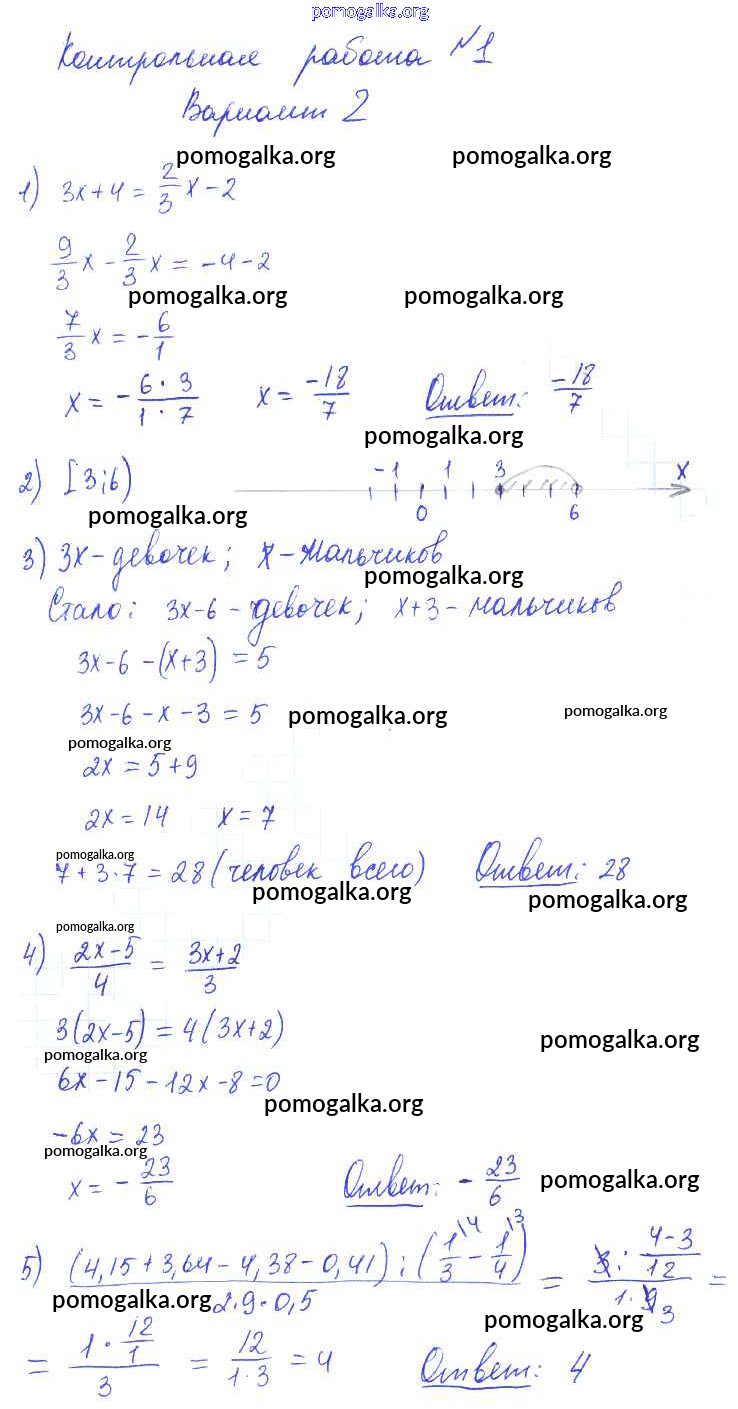 pomogalka.org
Контрольная работа №1
Вариант 2
pomogalka.org pomogalka.org
1) 3x+4 = 2/3 x - 2
9/3 x - 2/3 x = -4-2
pomogalka.org pomogalka.org
7/3 x = - 6/1
x = - 6·3/1·7 x = -18/7 Ответ: -18/7
pomogalka.org
2) [3;6) -1 1 3 x
0 6
pomogalka.org
3) 3x-девочек; x-мальчиков
pomogalka.org
Стало: 3x-6-девочек; x+3-мальчиков
3x-6-(x+3) = 5
3x-6-x-3 = 5 pomogalka.org pomogalka.org
pomogalka.org
2x = 5+9
2x = 14 x = 7
pomogalka.org
7+3·7 = 28 (человек всего) Ответ: 28
pomogalka.org pomogalka.org
pomogalka.org
4) 2x-5/4 = 3x+2/3
3(2x-5) = 4(3x+2)
pomogalka.org pomogalka.org
6x-15-12x-8=0
pomogalka.org
-6x = 23
pomogalka.org
x = - 23/6 Ответ: - 23/6 pomogalka.org
5) (4,15+3,64-4,38-0,41):(1/3 \4 - 1/4 \3)/2·9·0,5 = 3: 4-3/12 / 1·9 3 =
pomogalka.org pomogalka.org
= 1·12/1 / 3 = 12/1·3 = 4 Ответ: 4